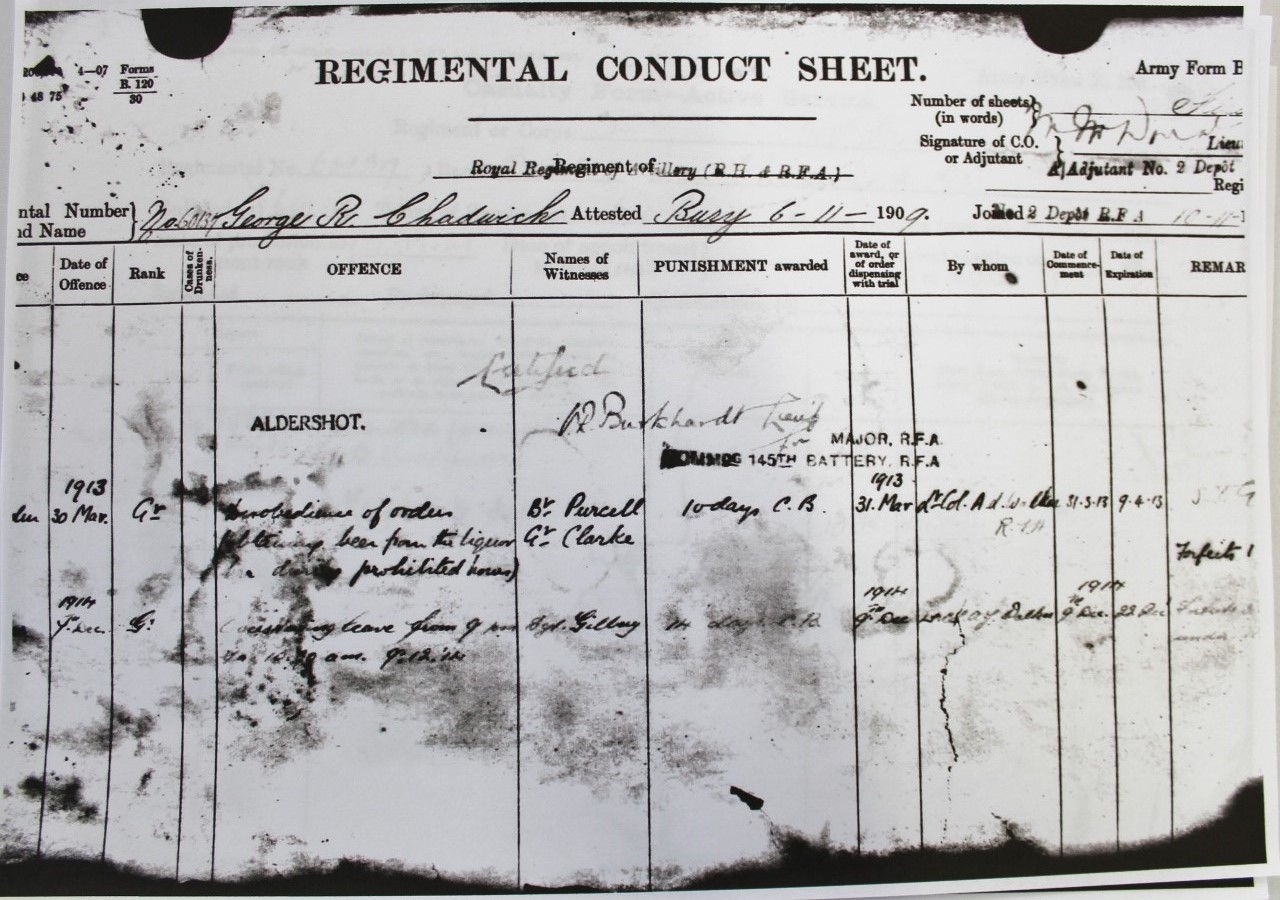 4—07 Forms
B. 120
30
48 75
REGIMENTAL CONDUCT SHEET.
Army Form B
Number of sheets
(in words)
Signature of C.O.
or Adjutant
Lieu
Adjutant No. 2 Depôt
Regi
Royal Regiment of Artillery (R.H. & R.F.A.)
Regiment of
ntal Number
nd Name
No George R. Chadwick Attested Bury 6-11- 1909. Joined 2 Depôt R.F.A 10-11-1
ce
Date of
Offence
Rank
Cases of
Drunken-
ness.
OFFENCE
Names of
Witnesses
PUNISHMENT awarded
Date of
award, or
of order
dispensing
with trial
By whom
Date of
Commence-
ment
Date of
Expiration
REMAR
Certified
ALDERSHOT.
Burkhardt Lieut
for MAJOR, R.F.A.
COMMDG 145TH BATTERY, R.F.A
1913 1913
30 Mar. Gr Disobedience of orders Br. Purcell 10 days C.B. 31. Mar Lt Col. 31-3-13 9-4-13
obtaining beer from the liquor Gr. Clarke
during prohibited hours)
Forfeits 1
1914 1914 1914
Dec. Gr Overstaying leave from 9 Sgt. 14 days C.B 9th Dec 9th Dec. 22 Dec
a.m. 9.12.14